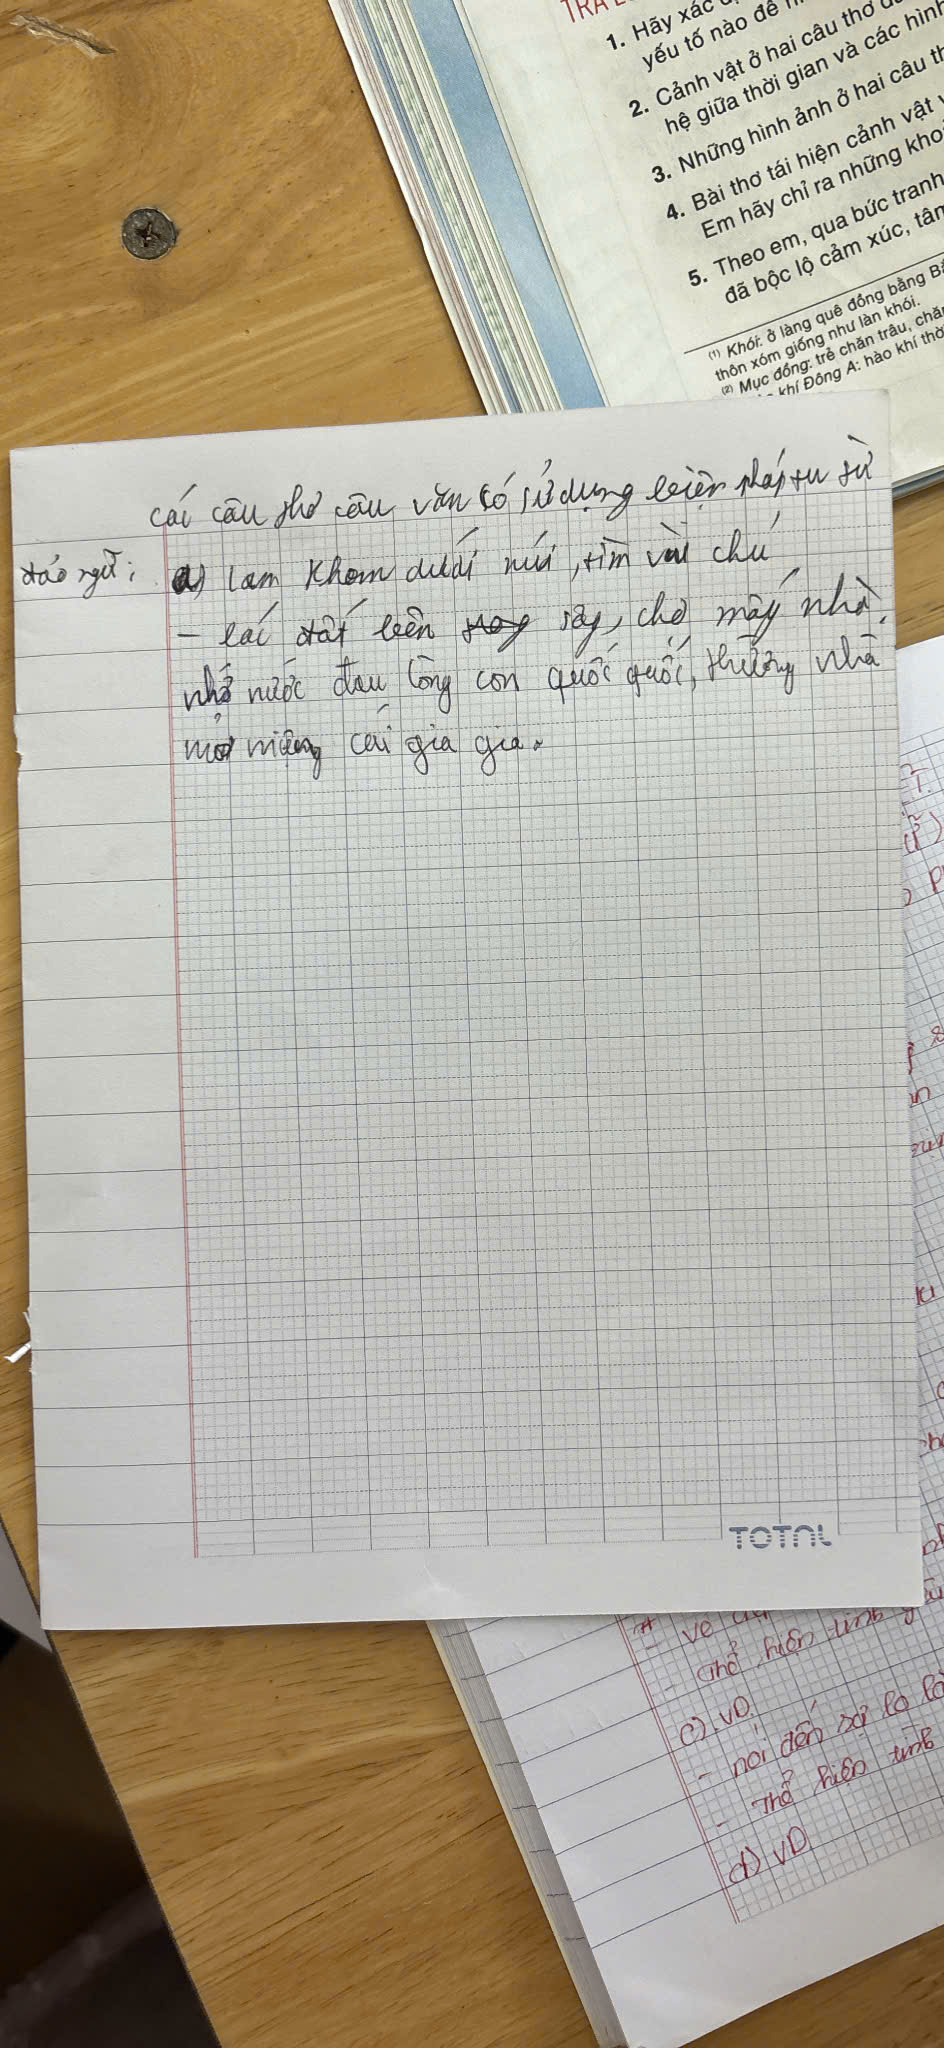 1. Hãy xác
yếu tố nào để
2. Cảnh vật ở hai câu thơ
hệ giữa thời gian và các hình
3. Những hình ảnh ở hai câu
4. Bài thơ tái hiện cảnh vật
Em hãy chỉ ra những
5. Theo em, qua bức tranh
đã bộc lộ cảm xúc,
(1) Khói: ở làng quê đồng bằng
thôn xóm giống như làn khói.
(2) Mục đồng: trẻ chăn trâu,
khí Đông A: hào khí
các câu thơ câu văn có sử dụng biện pháp tu từ
đảo ngữ:
a) lom khom dưới núi, tìm vài chú
- lác đác bên sông, chợ mấy nhà.
nhớ nước đau lòng con quốc quốc, thương nhà
mỏi miệng cái gia gia.
TOTAL
thể hiện tình
c) VD
- nói đến
- Thể hiện tình
d) VD